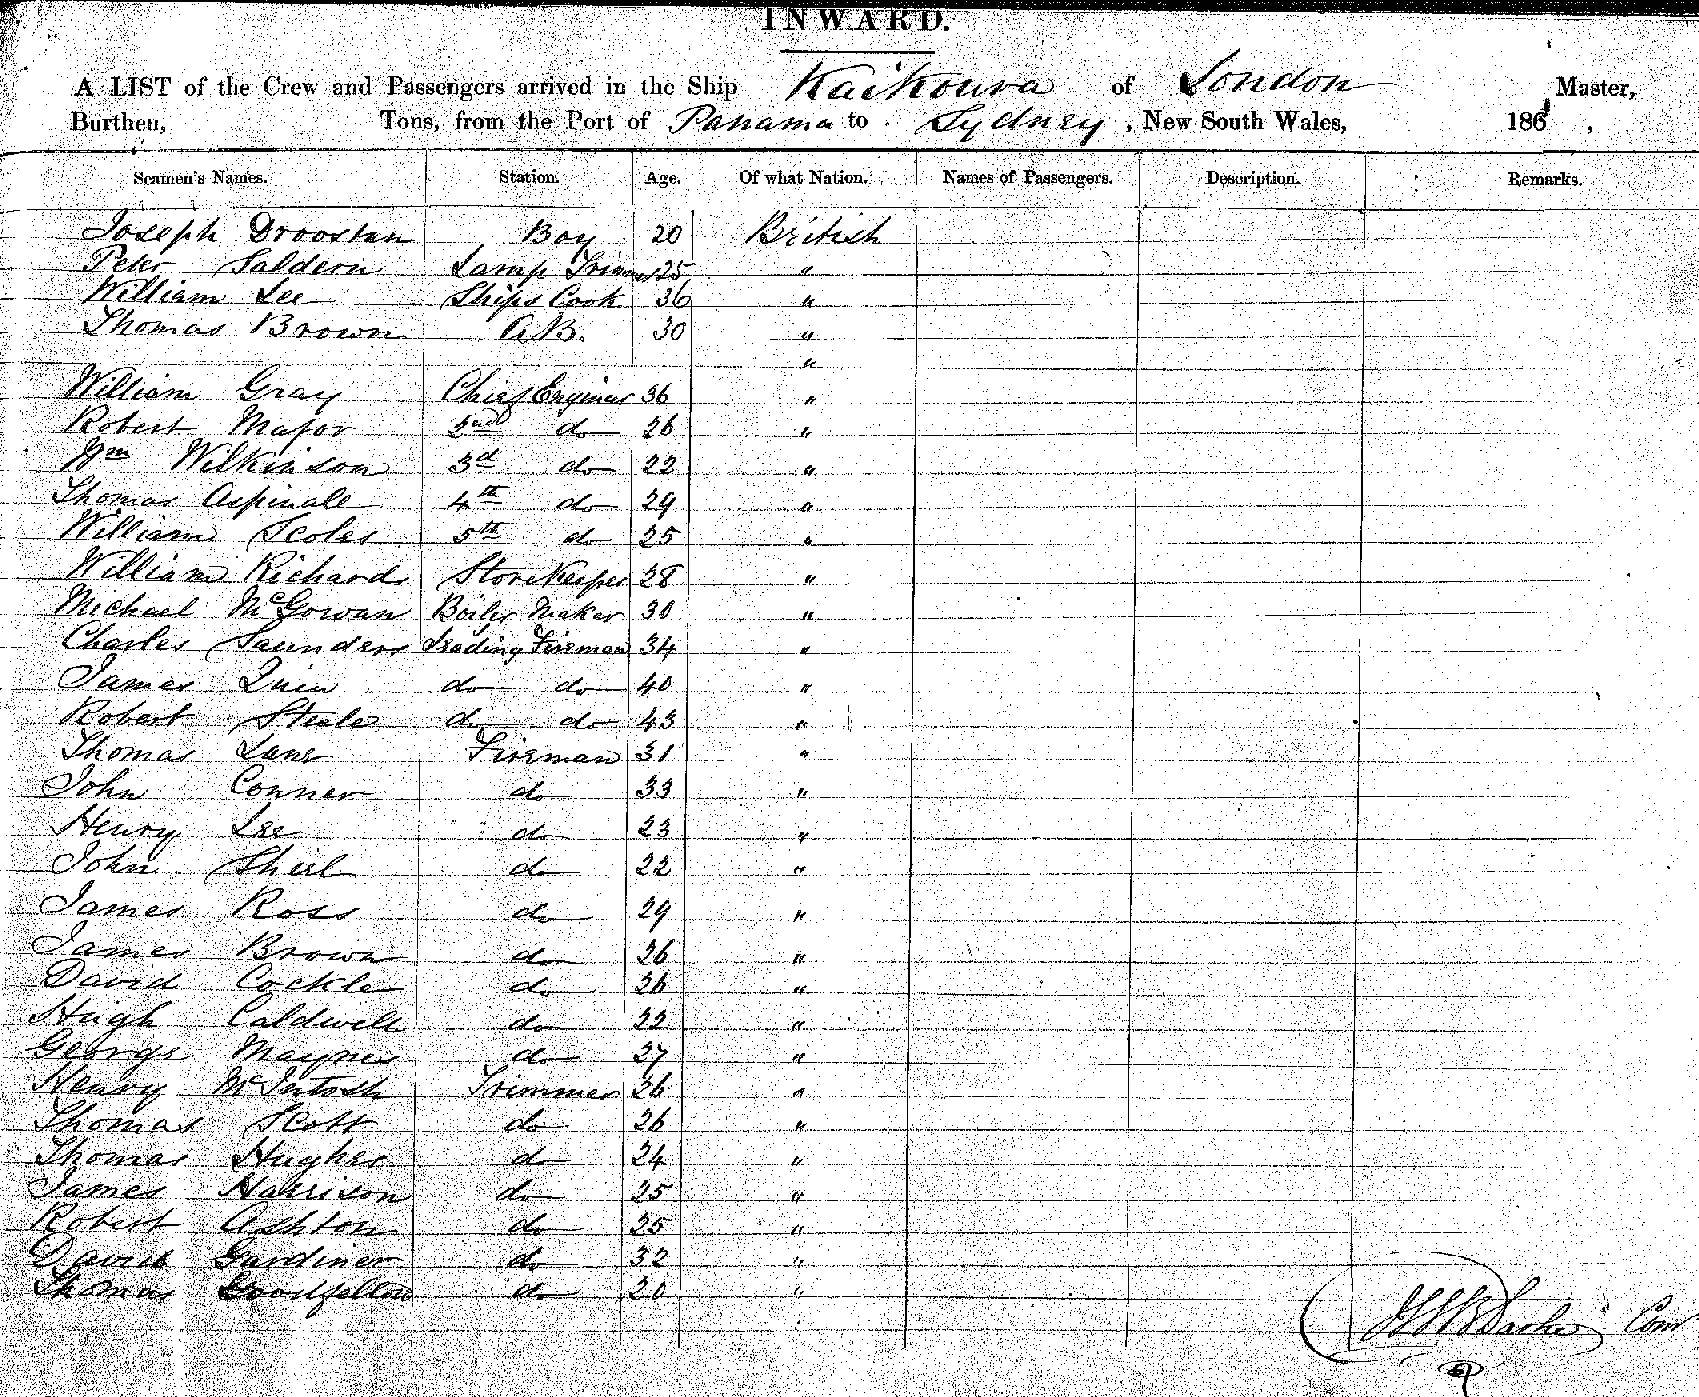 INWARD.
A LIST of the Crew and Passengers arrived in the Ship Kaikoura of London Master,
Burthen, Tons, from the Port of Panama to Sydney, New South Wales, 186 ,
Seamen's Names. Station. Age. Of what Nation. Names of Passengers. Description. Remarks.
Joseph Boy 20 British
Peter Lamp Trimmer 25 "
William Lee Ships Cook 36 "
Thomas Brown A.B. 30 "
"
William Gray Chief Engineer 36 "
Robert Major 2nd do 26 "
Wm Wilkinson 3d do 22 "
Thomas Aspinall 4th do 29 "
William Scoles 5th do 25 "
William Richards Storekeeper 28 "
Michael McGowan Boiler Maker 30 "
Charles Saunders Leading Fireman 34 "
James Quin do do 40 "
Robert Steele do do 43 "
Thomas Lane Fireman 31 "
John Conner do 33 "
Henry Lee do 23 "
John Shiel do 22 "
James Ross do 29 "
James Brown do 26 "
David Cockle do 26 "
Hugh Caldwell do 22 "
George Maynes do 27 "
Henry McIntosh Trimmer 26 "
Thomas Scott do 26 "
Thomas Hughes do 24 "
James Harrison do 25 "
Robert Ashton do 25 "
David Gardiner do 32 "
Thomas do 20 "
Com